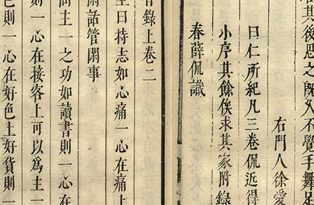 其後思之既久不覺手舞足
右門人徐愛
曰仁所紀凡三卷侃近得
小序其餘俟求其家附錄
春薛侃識
錄上卷二
生曰持志如心痛一心在痛上
閒話管閒事
問主一之功如讀書則一心在
則一心在接客上可以為主一
色則一心在好色上好貨則一